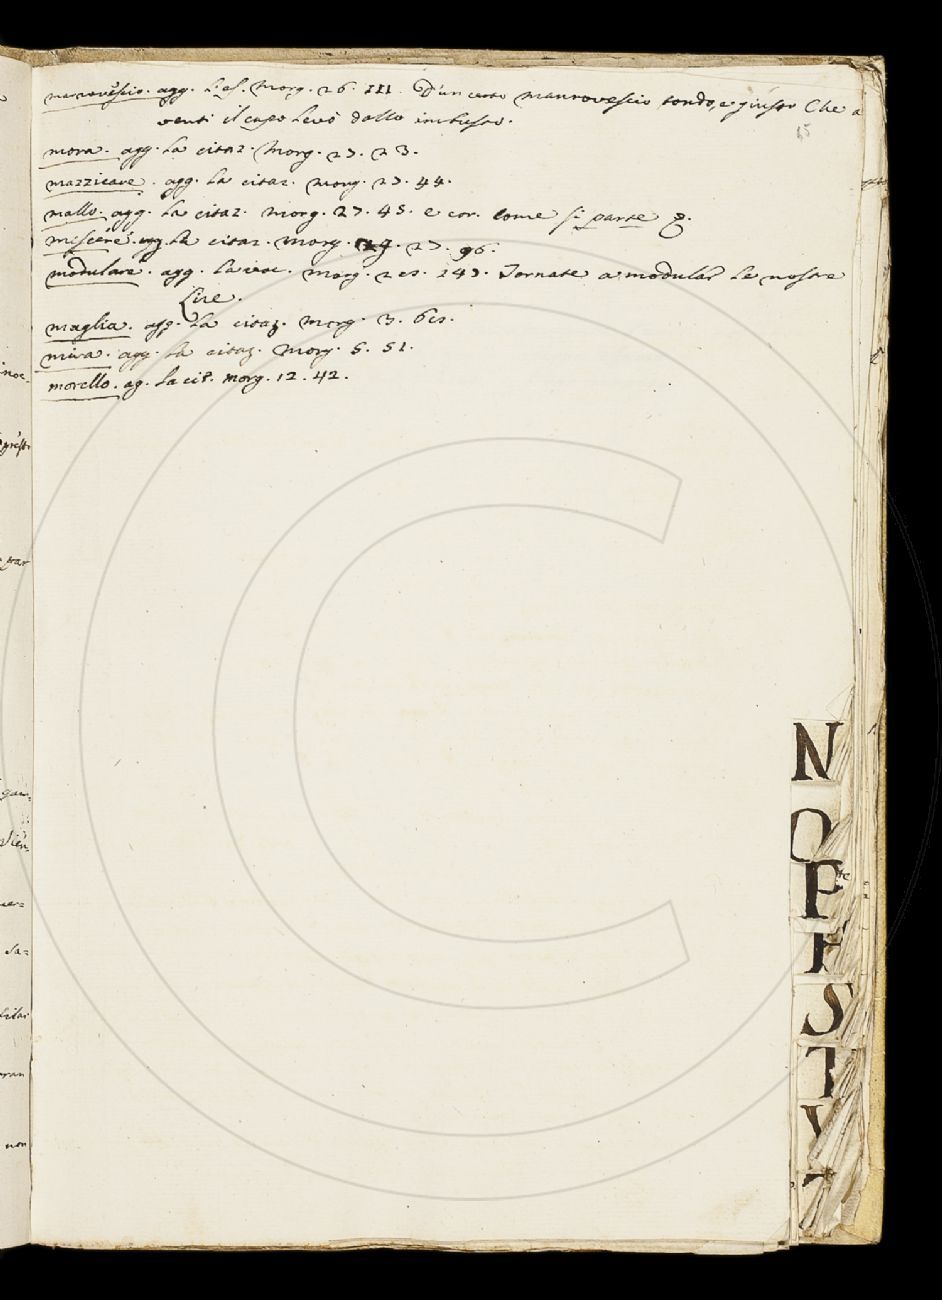 manrovescio. agg. l'es. Morg. 26. 111. D'un certo manrovescio tondo, e giusto Che a
venti il capo levò dallo imbusto.
15
mora. agg. la citaz. Morg. 27. 23.
mazzicare. agg. la citaz. morg. 27. 44.
mallo. agg. la citaz. morg. 27. 45. e cor. come si parte
miscere. agg. la citaz. morg. 27. 96.
modulare. agg. la voc. morg. 28. 143. Tornate a modular le nostre
Lire.
maglia. agg. la citaz. morg. 3. 68.
mira. agg. la citaz. morg. 5. 51.
morello. ag. la cit. morg. 12. 42.
N
O
P
S
T
V
Z